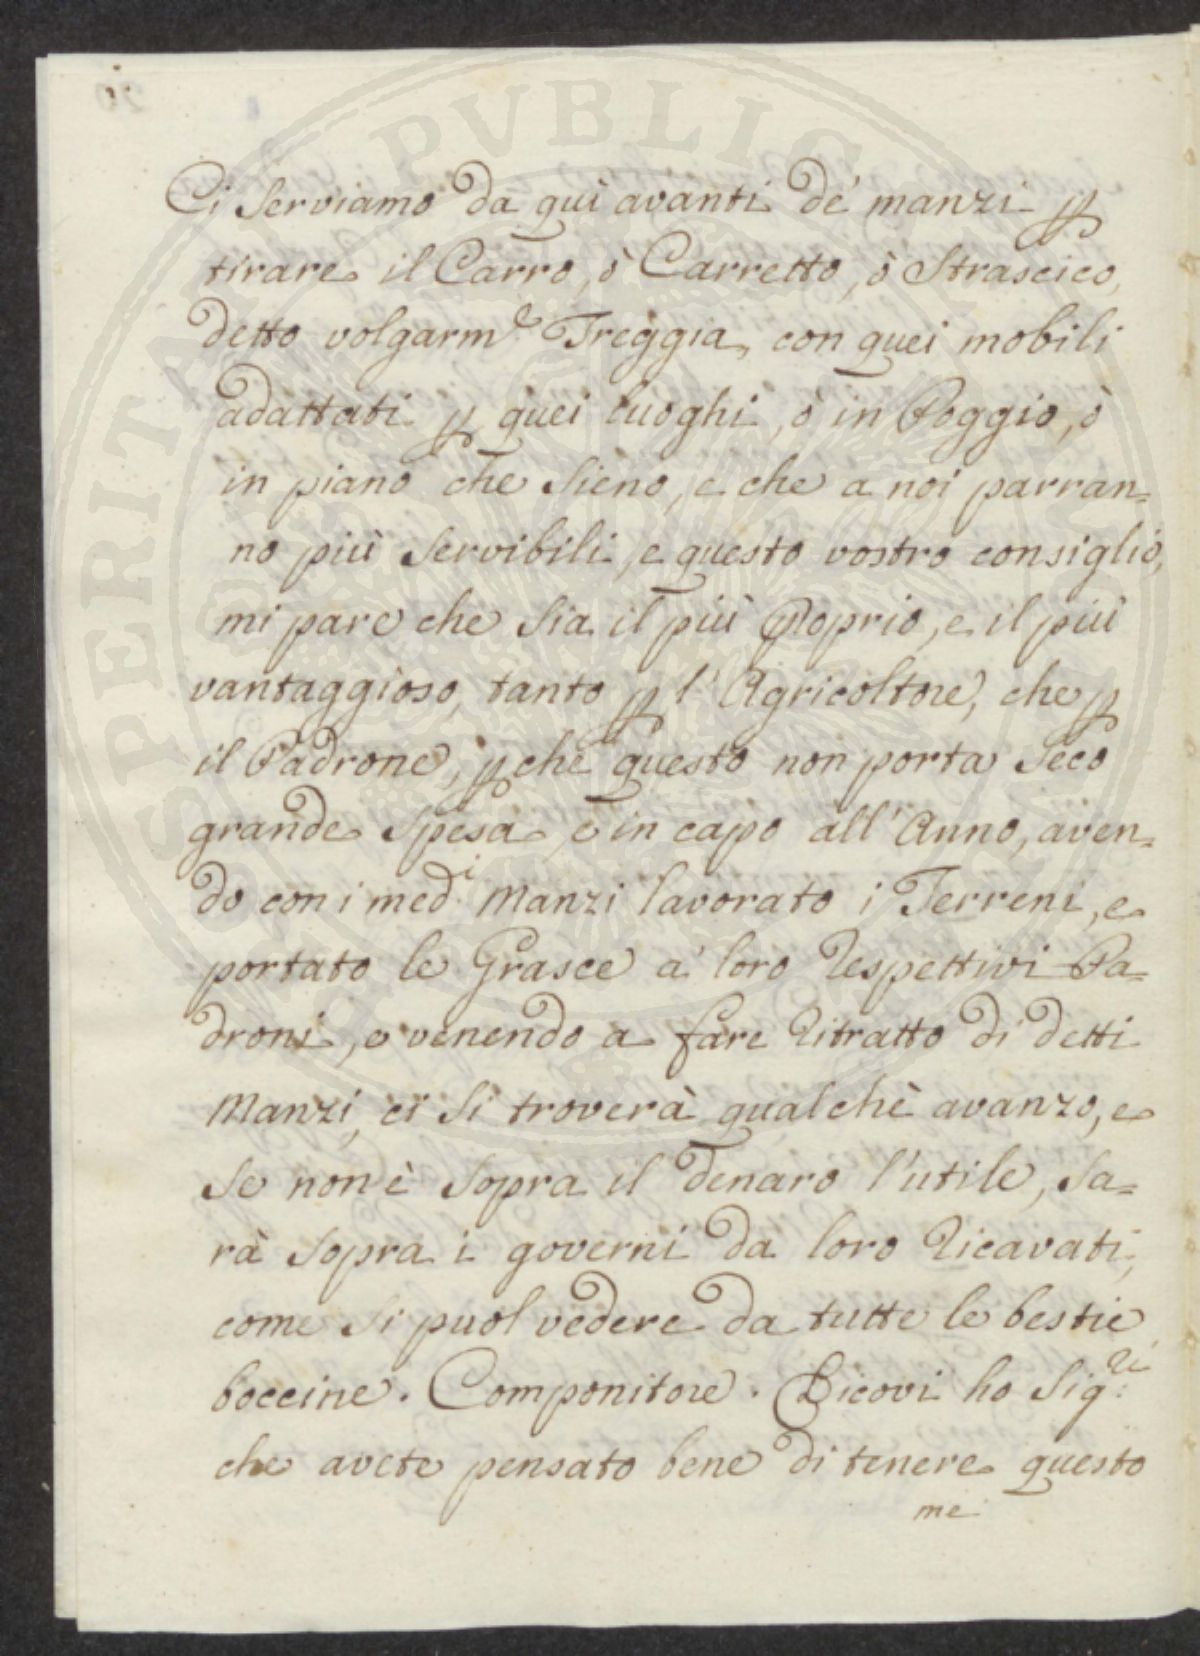 Ci Serviamo da quì avanti de' manzi p
tirare il Carro, ò Carretto, ò Strascico,
detto volgarm.e Treggia, con quei mobili
adattati p quei luoghi, ò in Poggio, ò
in piano che Sieno, e che a noi parran=
no più Servibili, e questo vostro consiglio,
mi pare che Sia il più Proprio, e il più
vantaggioso, tanto p l'Agricoltore, che p
il Padrone, p che questo non porta Seco
grande Spesa, e in capo all'Anno, aven=
do con i med.i Manzi lavorato i Terreni, e
portato le Grasce a' loro Respettivi Pa=
droni, e venendo a fare Ritratto di detti
Manzi, ci Si troverà qualchè avanzo, e
Se non è Sopra il denaro l'utile, Sa=
rà Sopra i governi da loro Ricavati,
come Si puol vedere da tutte le bestie
boccine. Componitore. Dicovi ho Sig.ri
che avete pensato bene di tenere questo
me